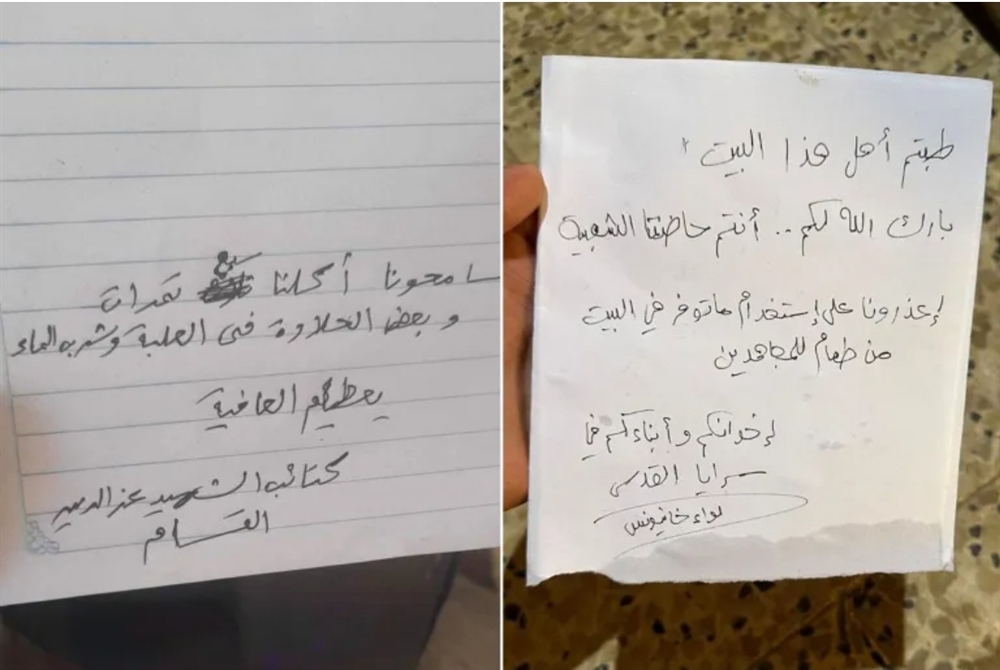 سامحونا أكلنا بضع تمرات
وبعض الحلاوة في العلبة وشربه الماء
يعطيكم العافية
كتائب الشهيد عز الدين
القسام
طبتم أهل هذا البيت
بارك الله لكم .. أنتم حاضنتنا الشعبية
إعذرونا على إستخدام ما توفر في البيت
من طعام للمجاهدين
إخوانكم وأبناءكم في
سرايا القدس
لواء خانيونس